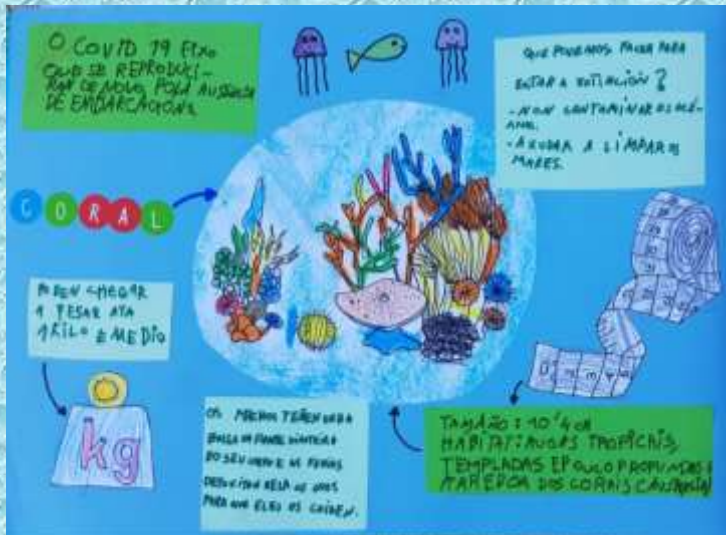 O COVID 19 FIXO
QUE SE REPRODUCI-
RAN DE NOVO POLA AUSENCIA
DE EMBARCACIONS
QUE PODEMOS FACER PARA
EVITAR A EXTINCIÓN?
-NON CONTAMINAR OS OCÉ-
ANOS.
-AXUDAR A LIMPAR OS
MARES.
CORAL
PODEN CHEGAR
A PESAR ATA
1 KILO E MEDIO
kg
OS MACHOS TEÑEN UNHA
BOLSA NA PARTE DIANTEIRA
DO SEU CORPO E AS FEMIAS
DEPOSITAN NELA OS OVOS
PARA QUE ELES OS COIDEN.
TAMAÑO: 10'4 CM
HABITAT: AUGAS TROPICAIS,
TEMPLADAS E POUCO PROFUNDAS
DOS CORAIS